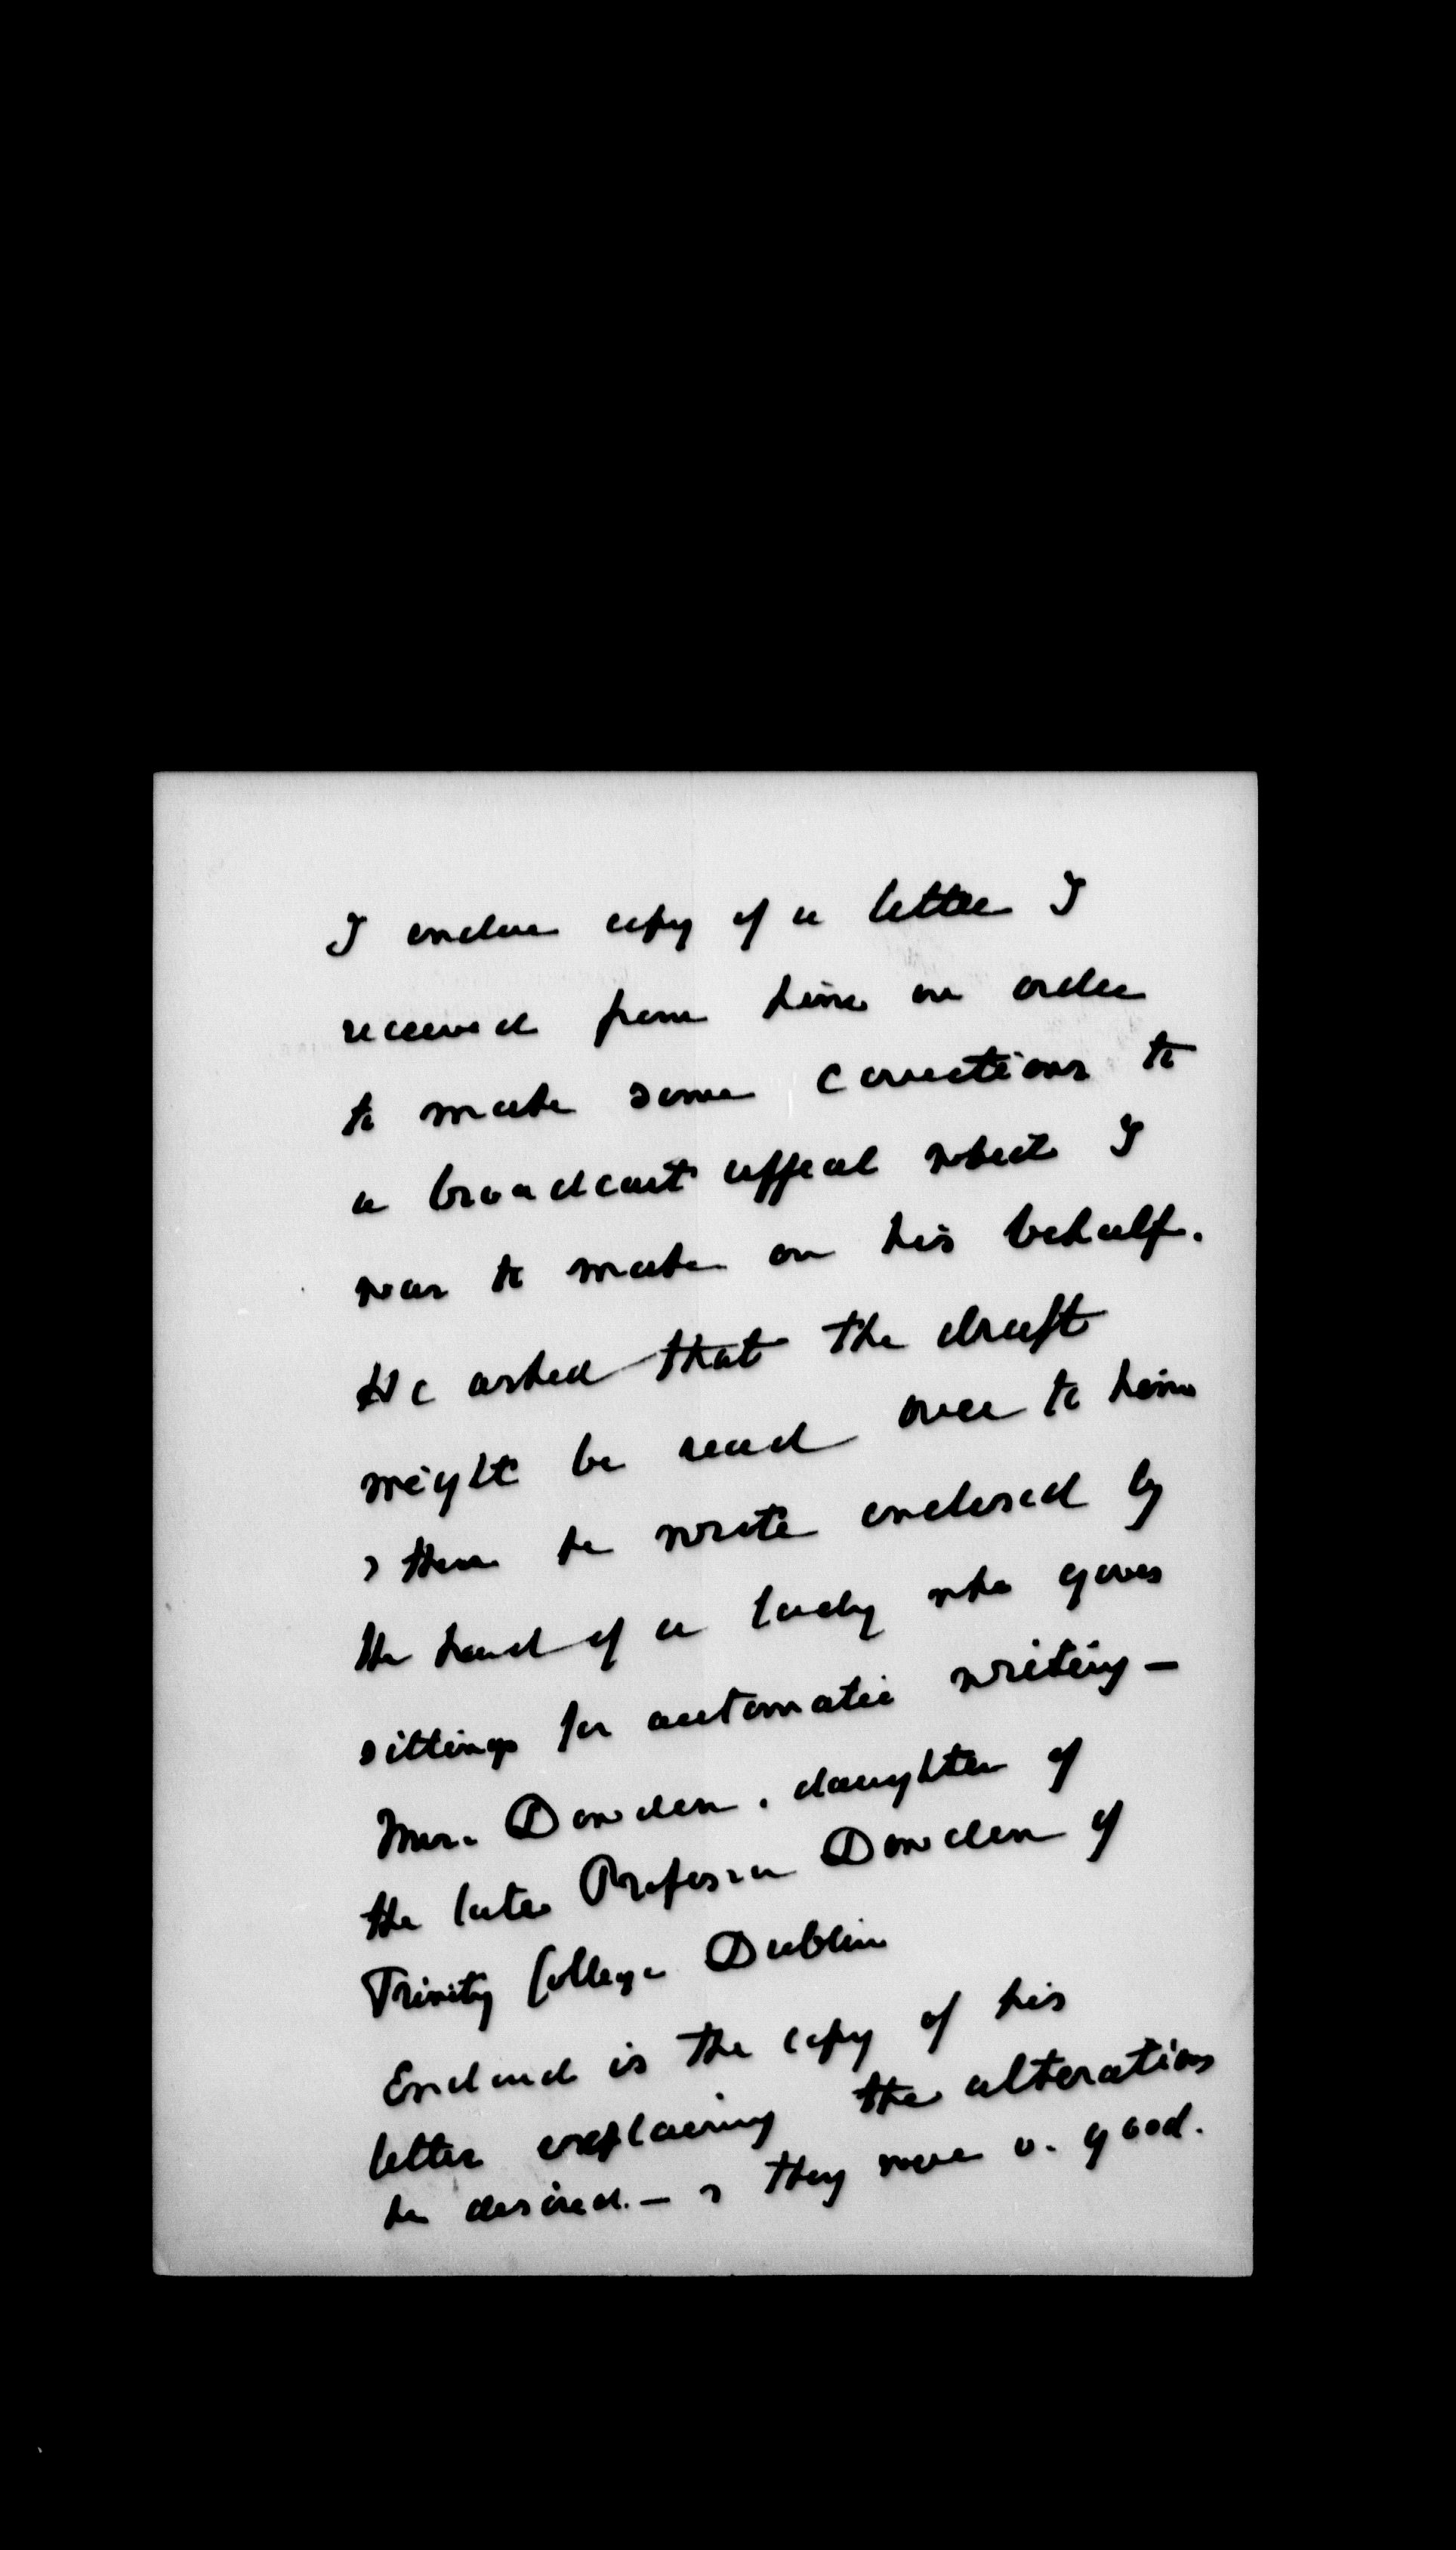 I enclose copy of a letter I
received from him in order
to make some corrections to
a broadcast appeal which I
was to make on his behalf.
He asked that the draft
might be read over to him
& then he wrote enclosed by
the hand of a lady who gives
sittings for automatic writing —
Mrs. Dowden, daughter of
the late Professor Dowden of
Trinity College Dublin
Enclosed is the copy of his
letter explaining the alterations
he desired. — & they were v. good.